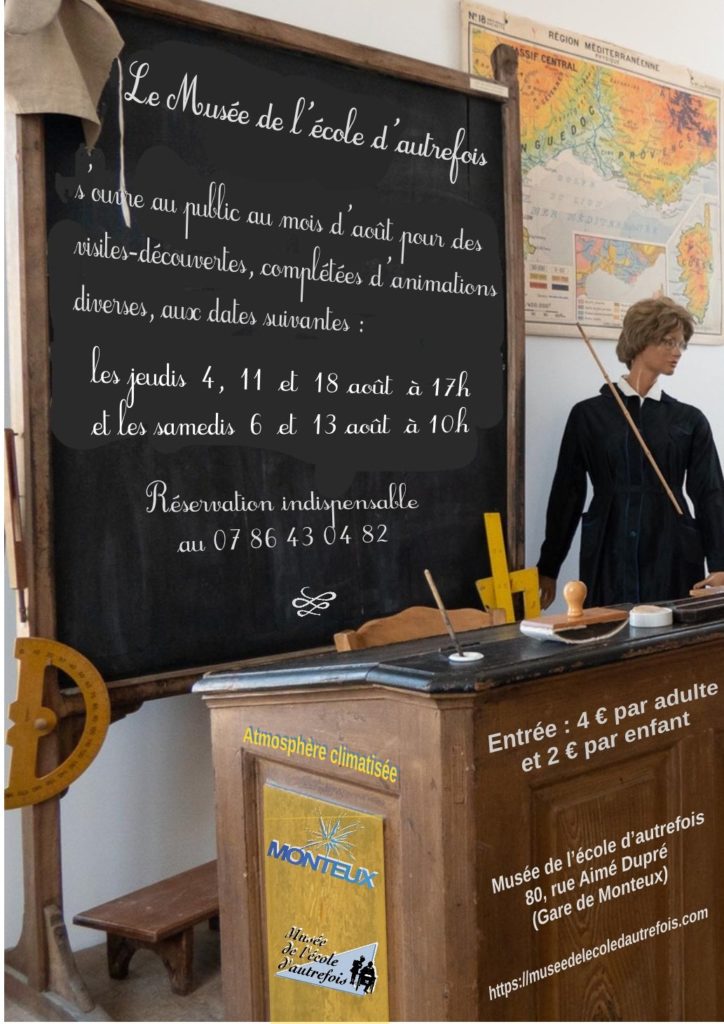 Le Musée de l'école d'autrefois
s'ouvre au public au mois d'août pour des
visites-découvertes, complétées d'animations
diverses, aux dates suivantes :
les jeudis 4, 11 et 18 août à 17h
et les samedis 6 et 13 août à 10h
Réservation indispensable
au 07 86 43 04 82
N°18
RÉGION MÉDITERRANÉENNE
PHYSIQUE
MASSIF CENTRAL
LANGUEDOC
PROVENCE
GOLFE DU LION
MER MÉDITERRANÉE
Atmosphère climatisée
MONTEUX
Musée
de l'école
d'autrefois
Entrée : 4 € par adulte
et 2 € par enfant
Musée de l'école d'autrefois
80, rue Aimé Dupré
(Gare de Monteux)
https://museedelecoledautrefois.com